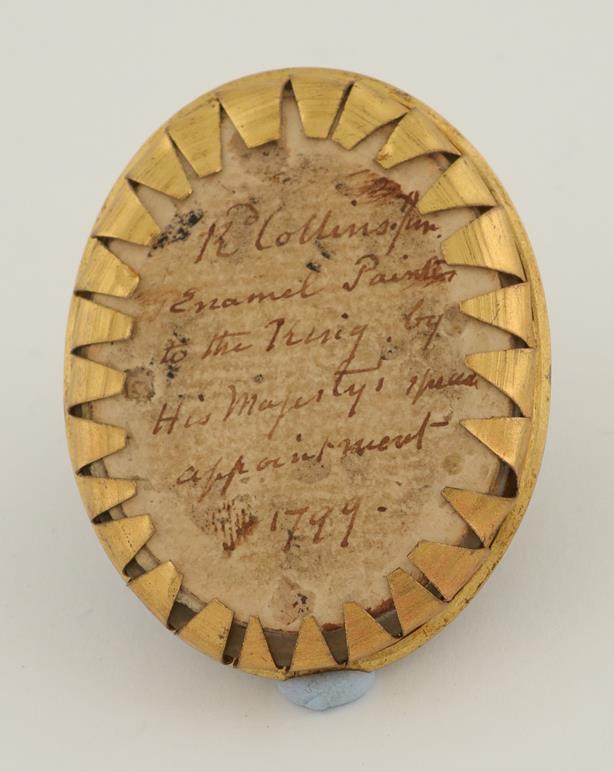 Rd Collins pin.
Enamel Painter
to the King by
His Majestys
appointment
1799.